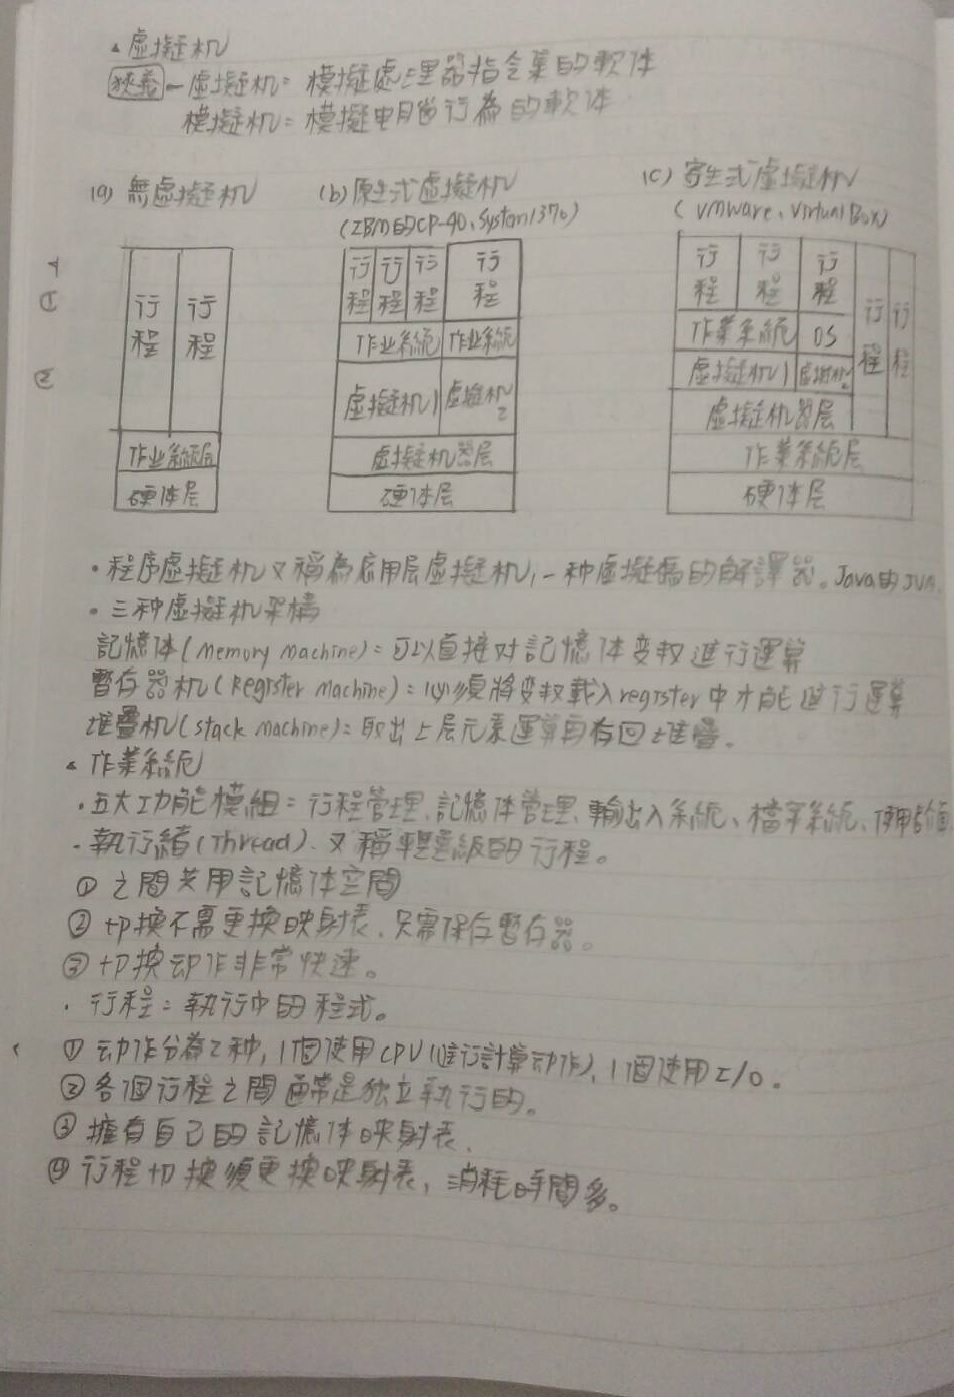 ▵ 虛擬机
狹義 - 虛擬机: 模擬處理器指令集的軟体
模擬机: 模擬电腦行為的軟体
(a) 無虛擬机
行程 行程
作业系統层
硬体层
(b) 原生式虛擬机
(IBM的CP-40、System/370)
行程 行程 行程 行程
作业系統 作业系統
虛擬机1 虛擬机2
虛擬机器层
硬体层
(c) 寄生式虛擬机
(VMware、Virtual Box)
行程 行程 行程 行程 行程
作業系統 OS
虛擬机1 虛擬机2
虛擬机器层
作業系統层
硬体层
· 程序虛擬机又稱為應用层虛擬机,一种虛擬碼的解譯器。Java的JVM.
· 三种虛擬机架構
記憶体(Memory Machine): 可以直接对記憶体变数進行運算
暫存器机(Register Machine): 必須將变数載入register中才能進行運算
堆疊机(Stack Machine): 取出上层元素運算再存回堆疊。
▵ 作業系統
· 五大功能模組: 行程管理、記憶体管理、輸出入系統、檔案系統、使用者介面
· 執行緒(Thread). 又稱輕量級的行程。
① 之間共用記憶体空間
② 切換不需更換映射表、只需保存暫存器。
③ 切換动作非常快速。
· 行程: 執行中的程式。
① 动作分為2种, 1個使用CPU(進行計算动作), 1個使用I/O.
② 各個行程之間通常是独立執行的。
③ 擁有自己的記憶体映射表.
④ 行程切換須更換映射表, 消耗時間多。